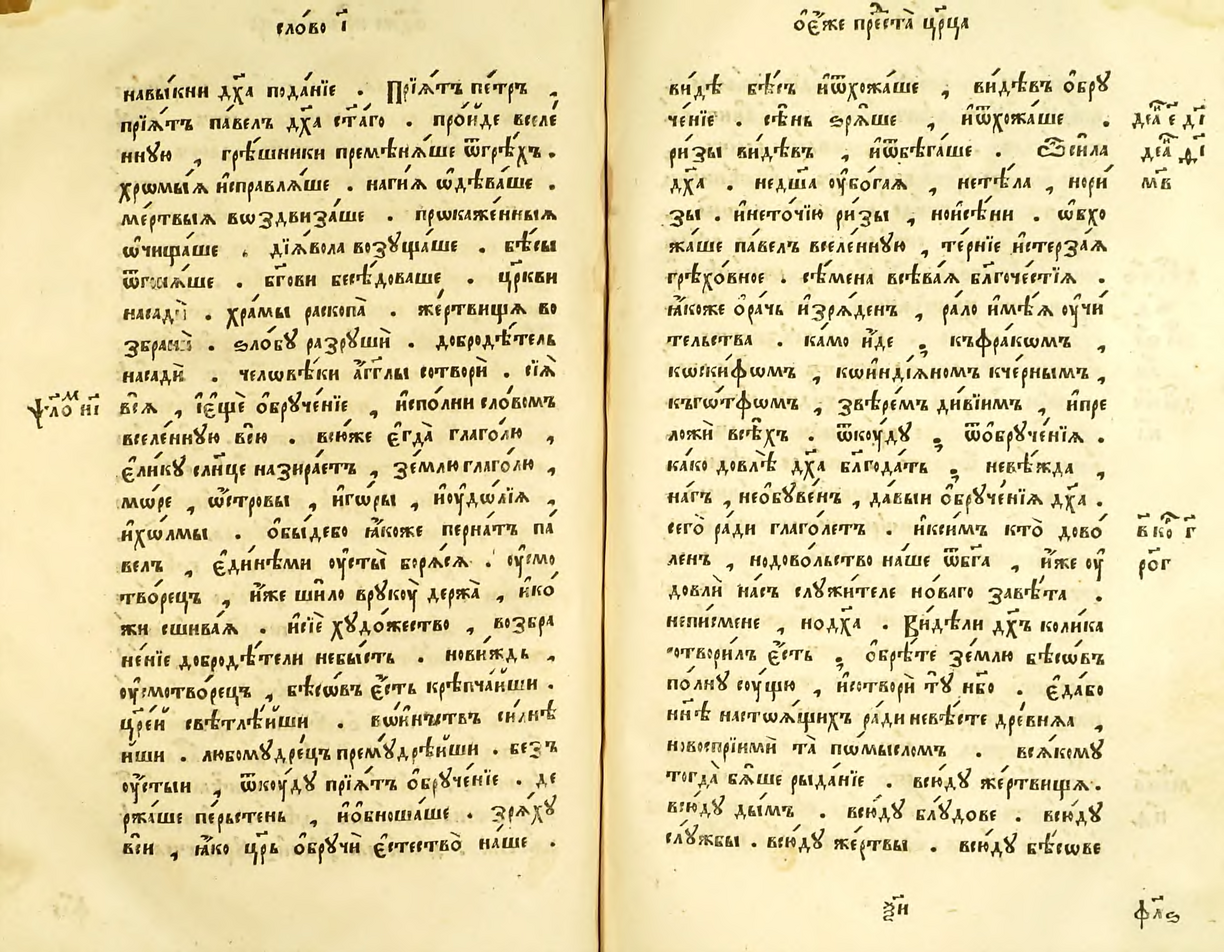 сло́во і҃
навы́кни дх҃а пода́нїе . Прїѧ́тъ пе́тръ ,
прїѧ́тъ па́велъ дх҃а ст҃а́го . про́йде вселе́
нную , грѣ́шники премѣнѧ́ше ѿгрѣ́хъ .
хрѡмы́ѧ исправлѧ́ше . наги́ѧ ѡдѣва́ше .
ме́ртвыѧ вѡздвиза́ше . прѡкаже́нныѧ
ѡчища́ше . дїѧ́вола возꙋща́ше . бѣ́сы
ѿгонѧ́ше . бг҃ови бесѣ́доваше . цр҃кви
насади̂ . хра́мы раскопа̀ . же́ртвищѧ во
збрани̂ . ѕло́бꙋ разрꙋши̂ . добродѣ́тель
насади̂ . человѣ́ки а҆́гг҃лы сотвори̂ . сїѧ̂
всѧ̂ , і҆е҆щѐ о҆брꙋче́нїе , и҆спо́лни сло́вомъ
ѱало́м н҃і
вселе́ннꙋю всю̀ . всю́же е҆гда̀ глаго́лю ,
е҆ли́кꙋ сл҃нце назира́етъ , зе́млю глаго́лю ,
мѡ́ре , ѡ҆́стровы , и҆гѡ́ры , и҆оу҆дѡ́лїѧ ,
и҆хѡ́лмы . о҆бы́дебо ꙗ҆́коже перна́тъ па́
велъ , е҆ди́нѣми оу҆сты̀ борѧ́сѧ . оу҆смо
тво́рецъ , и҆́же ши́ло врꙋкоу̀ держа̀ , и҆ко́
жи сшива́ѧ . и҆сїѐ хꙋдо́жество , возбра
не́нїе добродѣ́тели небы́сть . нови́ждь ,
оу҆смотво́рецъ , бѣсѡ́въ е҆́сть крѣпча́йши .
цр҃е́й свѣтлѣ́йши . вѡ́инствъ силнѣ́
йши . любомꙋ́дрецъ премꙋдрѣ́йши . безъ
оу҆́стыи , ѿкоу́дꙋ прїѧ́тъ о҆брꙋче́нїе . де
ржа́ше пе́рьстень , и҆о҆бноша́ше . зрѧ́хꙋ
вси , ꙗ҆́ко цр҃ь о҆брꙋчѝ е҆стество̀ на́ше .
о҆е҆́же прⷭ҇та̀ цр҃ца
ви́дѣ бѣ́съ и҆ѿхожа́ше , ви́дѣвъ о҆брꙋ
че́нїе . сѣ́нь ѕрѧ́ше , и҆ѿхожа́ше .
дѣѧ́ е҃ д҃і
ри́зы ви́дѣвъ , и҆ѿбѣга́ше . Ѽ си́ла
дѣѧ́ ѳ҃і
дх҃а . недш҃а оу҆бо́гаѧ , нетѣ́ла , нори́
м҃в
зы . и҆нето́чїю ри́зы , нои҆сѣ́ни . ѡ҆бхо
жа́ше па́велъ вселе́ннꙋю , те́рнїе и҆стерза́ѧ
грѣхо́вное . сѣ́мена всѣва́ѧ благоче́стїѧ .
ꙗ҆́коже о҆ра́чь и҆зрѧ́ден , ра́ло и҆мѣ́ѧ оу҆чи́
тельства . ка́мо и҆́де ; къфра́кѡмъ ,
кѡски́фѡмъ , кѡи҆ндїѧ́номъ кче́рнымъ ,
къго́тфѡмъ , звѣре́мъ ди́вїимъ , и҆пре
ложѝ всѣ́хъ . ѿкоу́дꙋ ; ѿо҆брꙋче́нїѧ .
ка́ко довлѣ́ дх҃а благода́ть ; невѣ́жда ,
на́гъ , необꙋве́нъ , да́выи о҆брꙋче́нїѧ дх҃а .
сего̀ ра́ди глаго́летъ . и҆ксимъ кто̀ дово́
в ко҆ г҃
ленъ , нодово́льство на́ше ѿбг҃а , и҆́же оу҆
до́вли на́съ слꙋжи́теле но́ваго завѣ́та .
неписмене , нодх҃а . Ви́дѣли дх҃ъ коли́ка
сотвори́лъ е҆́сть ; о҆брѣ́те зе́млю бѣсѡ́въ
по́лнꙋ соу́щꙋю , и҆сотворѝ тꙋ̀ нб҃о . е҆да́бо
нн҃ѣ настоѧ́щихъ ра́ди невѣ́сте дре́внѧѧ ,
новоспрїимѝ та̀ пѡ́мысломъ . всѧ́комꙋ
тогда̀ бѧ́ше рыда́нїе . всю́дꙋ же́ртвищѧ .
всю́дꙋ ды́мъ . всю́дꙋ блꙋ́дове . всю́дꙋ
слꙋ́жбы . всю́дꙋ же́ртвы . всю́дꙋ бѣ́сѡве
ѯ҃и
фл҃ѕ